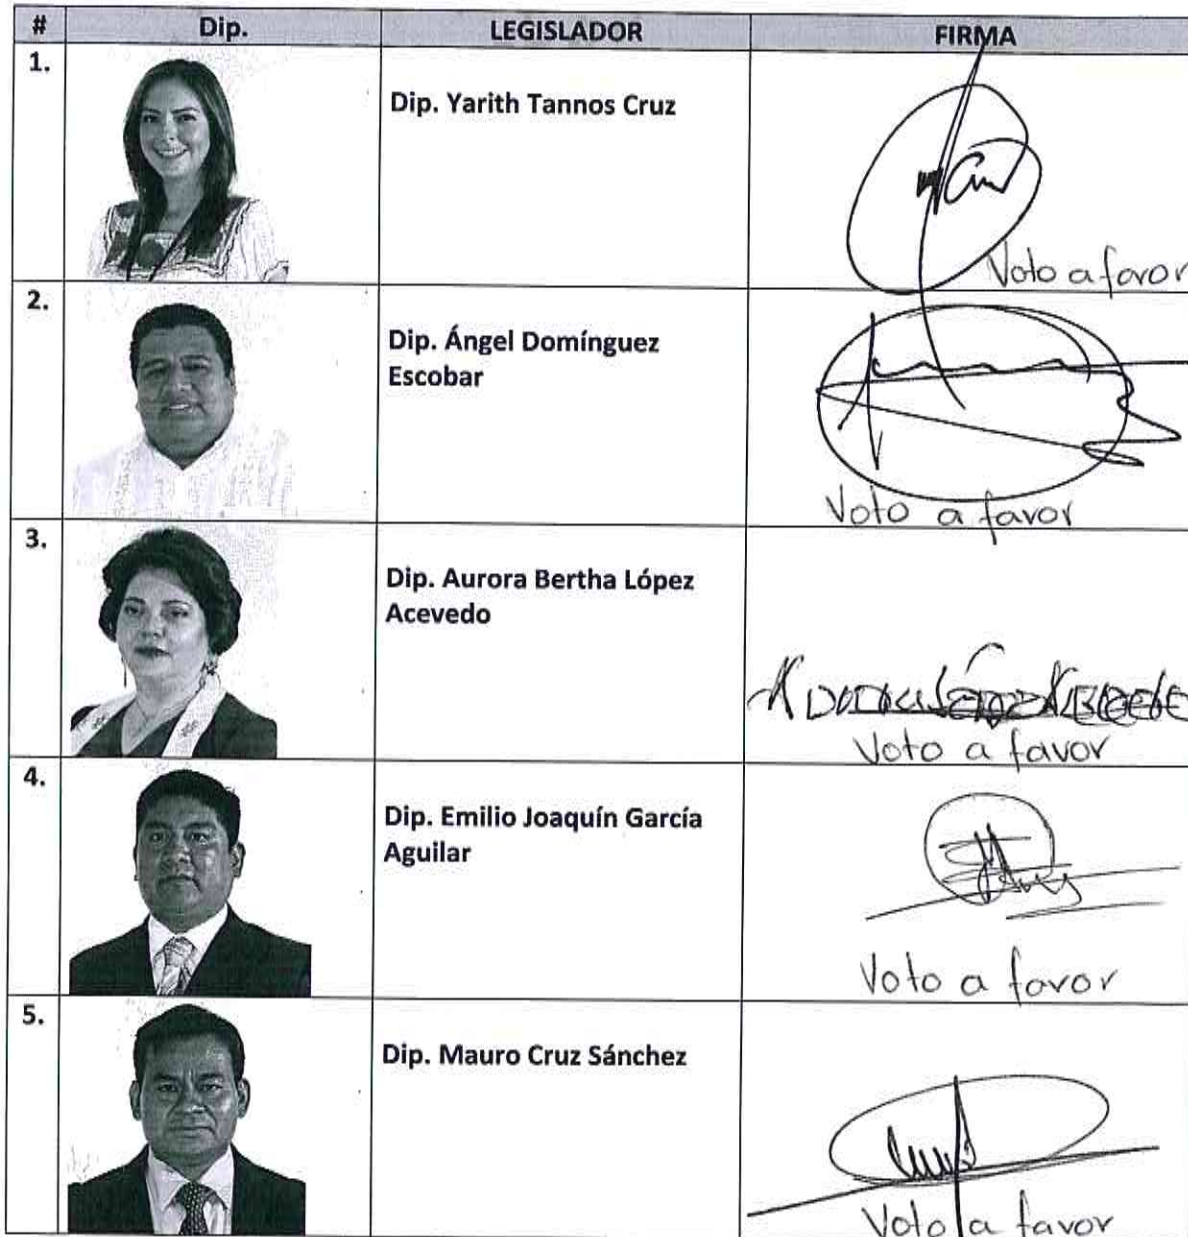 # Dip. LEGISLADOR FIRMA
1.
Dip. Yarith Tannos Cruz
Voto a favor
2.
Dip. Ángel Domínguez
Escobar
Voto a favor
3.
Dip. Aurora Bertha López
Acevedo
Voto a favor
4.
Dip. Emilio Joaquín García
Aguilar
Voto a favor
5.
Dip. Mauro Cruz Sánchez
Voto a favor